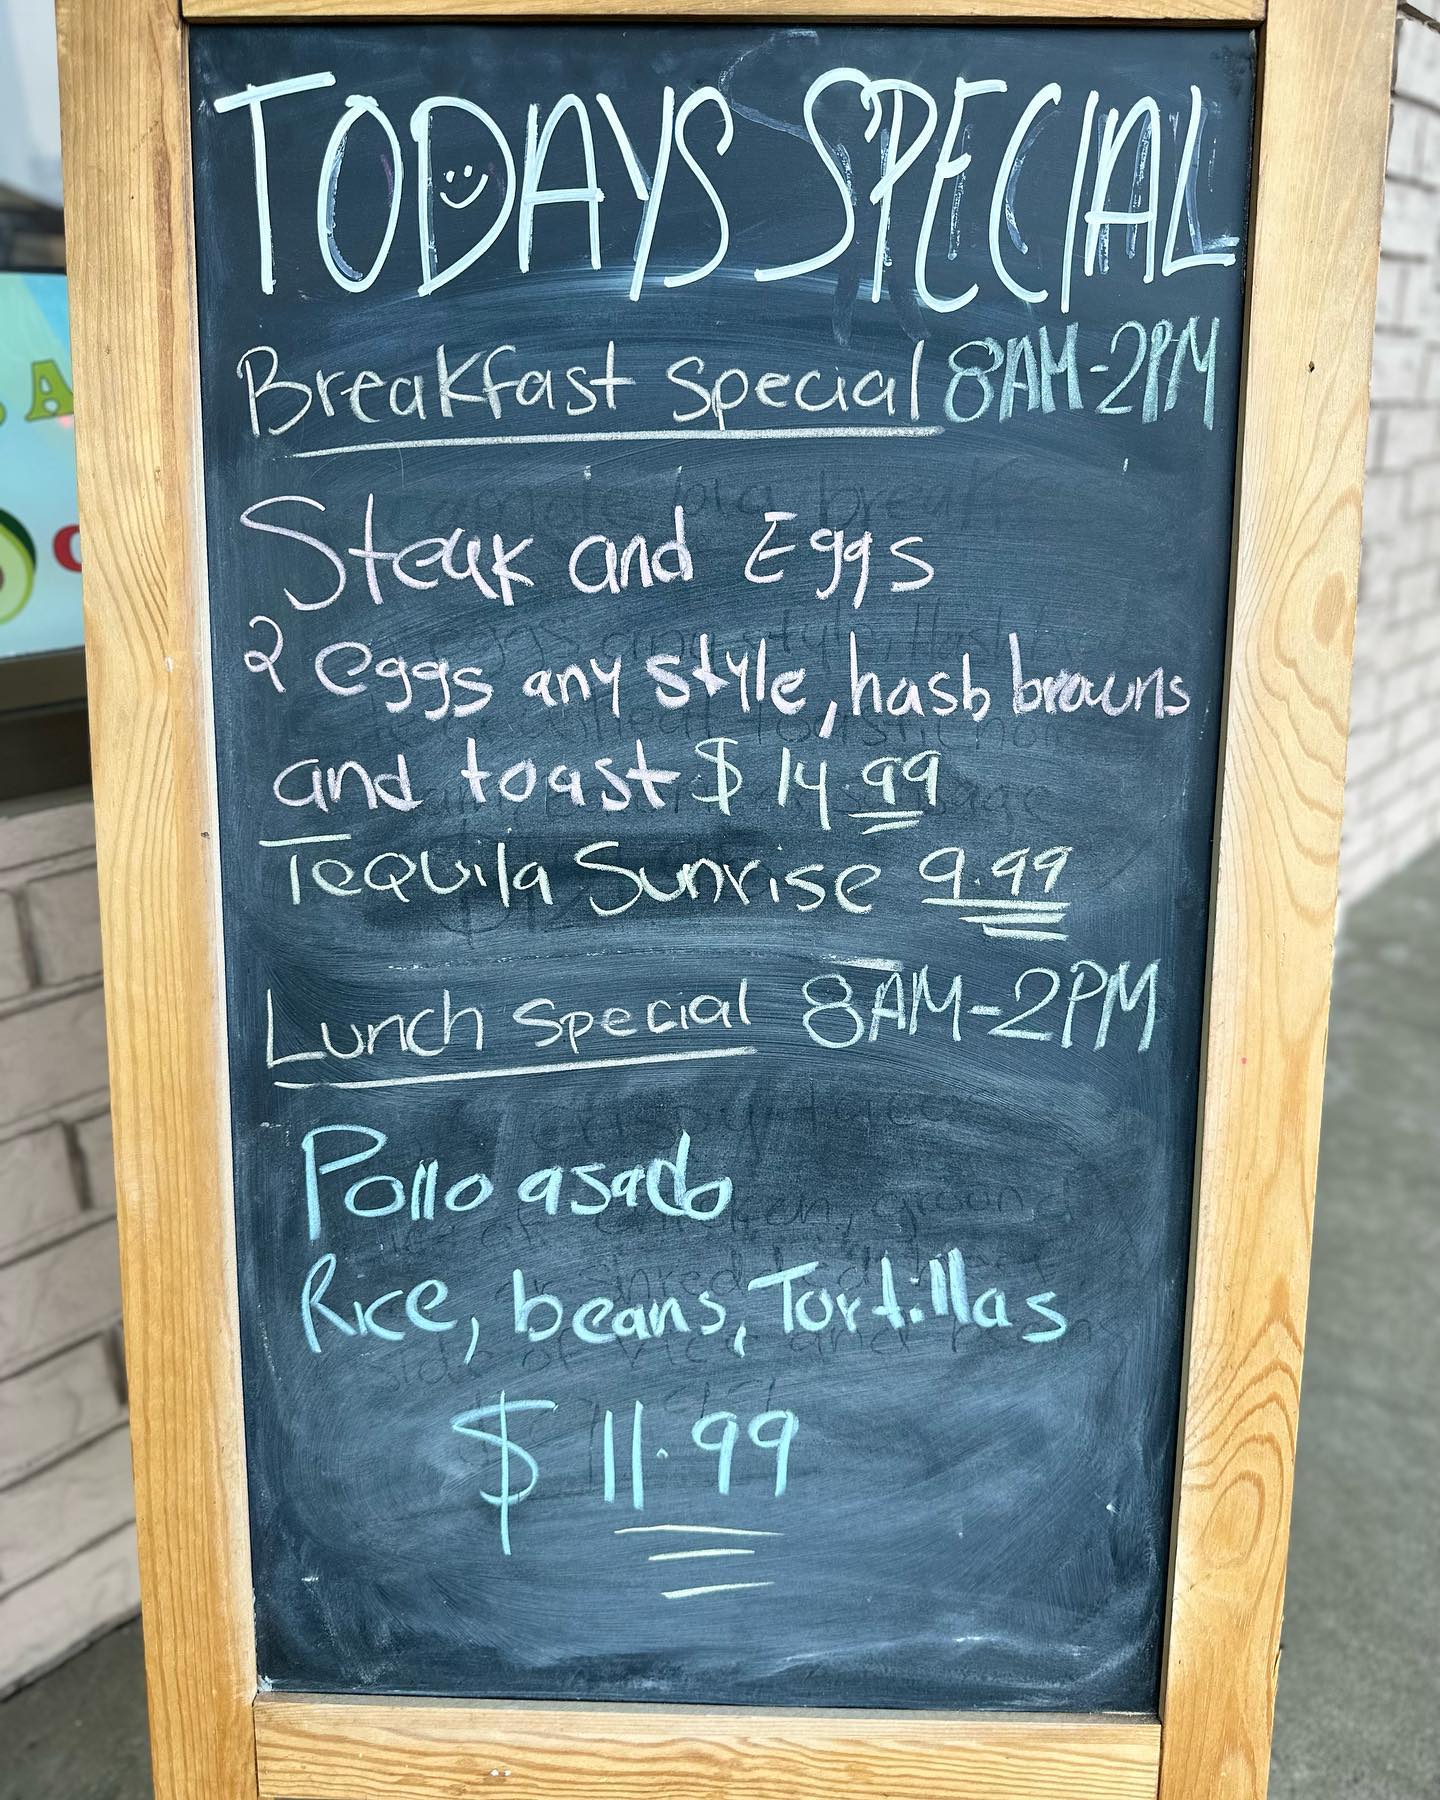 TODAYS SPECIAL
Breakfast Special 8AM-2PM
Steak and Eggs
2 eggs any style, hash browns
and toast $14.99
Tequila Sunrise 9.99
Lunch Special 8AM-2PM
Pollo asado
Rice, beans, Tortillas
$11.99